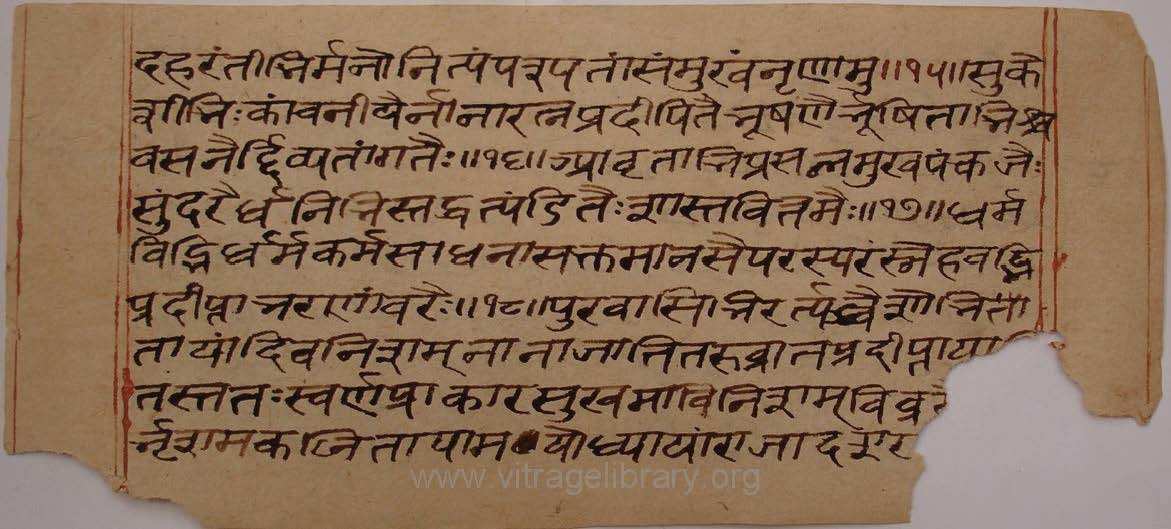 दहरंतीभिर्मनोनित्यंपश्यतांसंमुखंनृणामु॥१५॥सुके
शीभिःकांचनीयैर्नानारत्नप्रदीपितैभूषणैर्भूषिताभिश्च
वसनैर्द्दिव्यतांगतैः॥१६॥प्रावृताभिप्रसन्नमुखपंकजैः
सुंदरैर्धनिभिस्तद्वत्पंडितैःशास्तवितमैः॥१७॥धर्म
विद्भिर्धर्मकर्मसाधनासक्तमानसैपरस्परंस्नेहवद्भि
प्रदीप्तानराणांवरैः॥१८॥पुरवासिभिरर्त्य शोभिता
तायांदिवनिशम्नानाजातितरुव्रातप्रदीप्ताया
तस्ततःस्वर्णप्राकारसुखमाविनिशम्
तापामयोध्यायांराजादशर
www.vitragelibrary.org